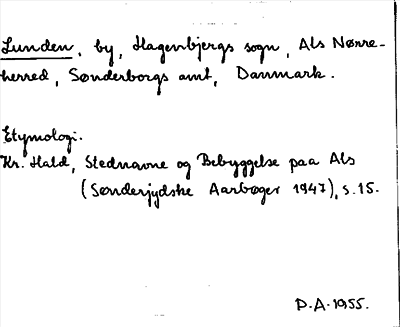 Lunden, by, Hagenbjergs sogn, Als Nørre-
herred, Sønderborgs amt, Danmark.
Etymologi.
Kr. Hald, Stednavne og Bebyggelse paa Als
(Sønderjydske Aarbøger 1947), s. 15.
P.A. 1955.